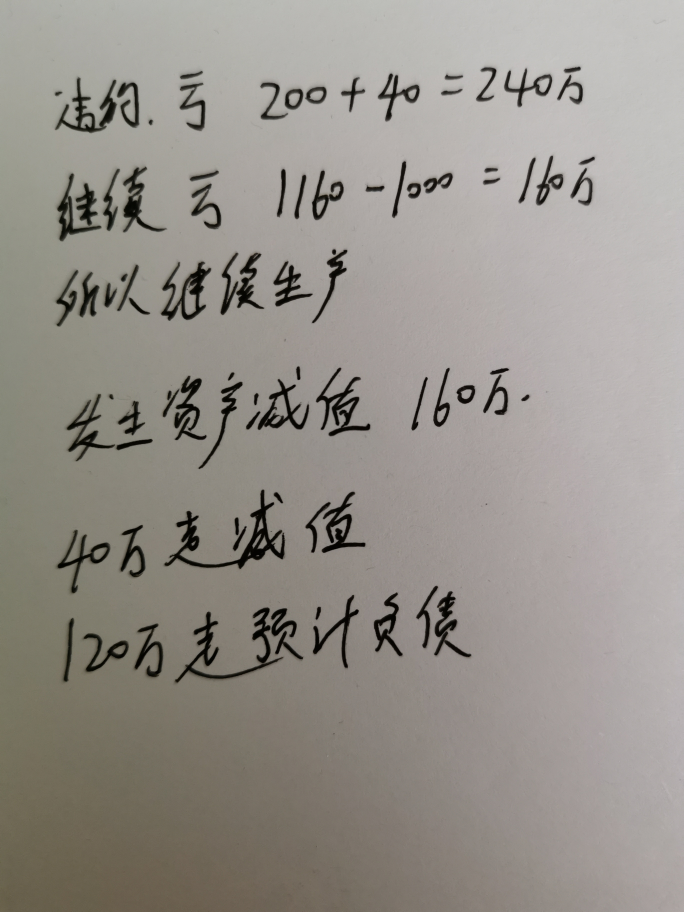 违约.亏 200+40=240万
继续亏 1160-1000=160万
所以继续生产
发生资产减值 160万.
40万走减值
120万走预计负债